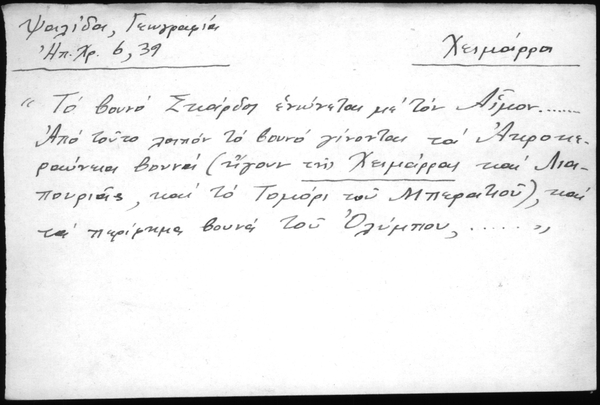 Ψαλίδα, Γεωγραφία
Ἠπ. Χρ. 6, 39
Χειμάρρα
“ Τό βουνό Σκάρδος ἑνώνεται με τόν Αἷμον.......
Ἀπό τοῦτο λοιπόν τό βουνό γίνονται τά Ἀκροκε-
ραύνεια βουνά (ἤγουν τῆς Χειμάρρας και Λια-
πουριᾶς, και τό Τομόρι τοῦ Μπερατιοῦ), και
τά περίφημα βουνά τοῦ Ὀλύμπου, ...... „